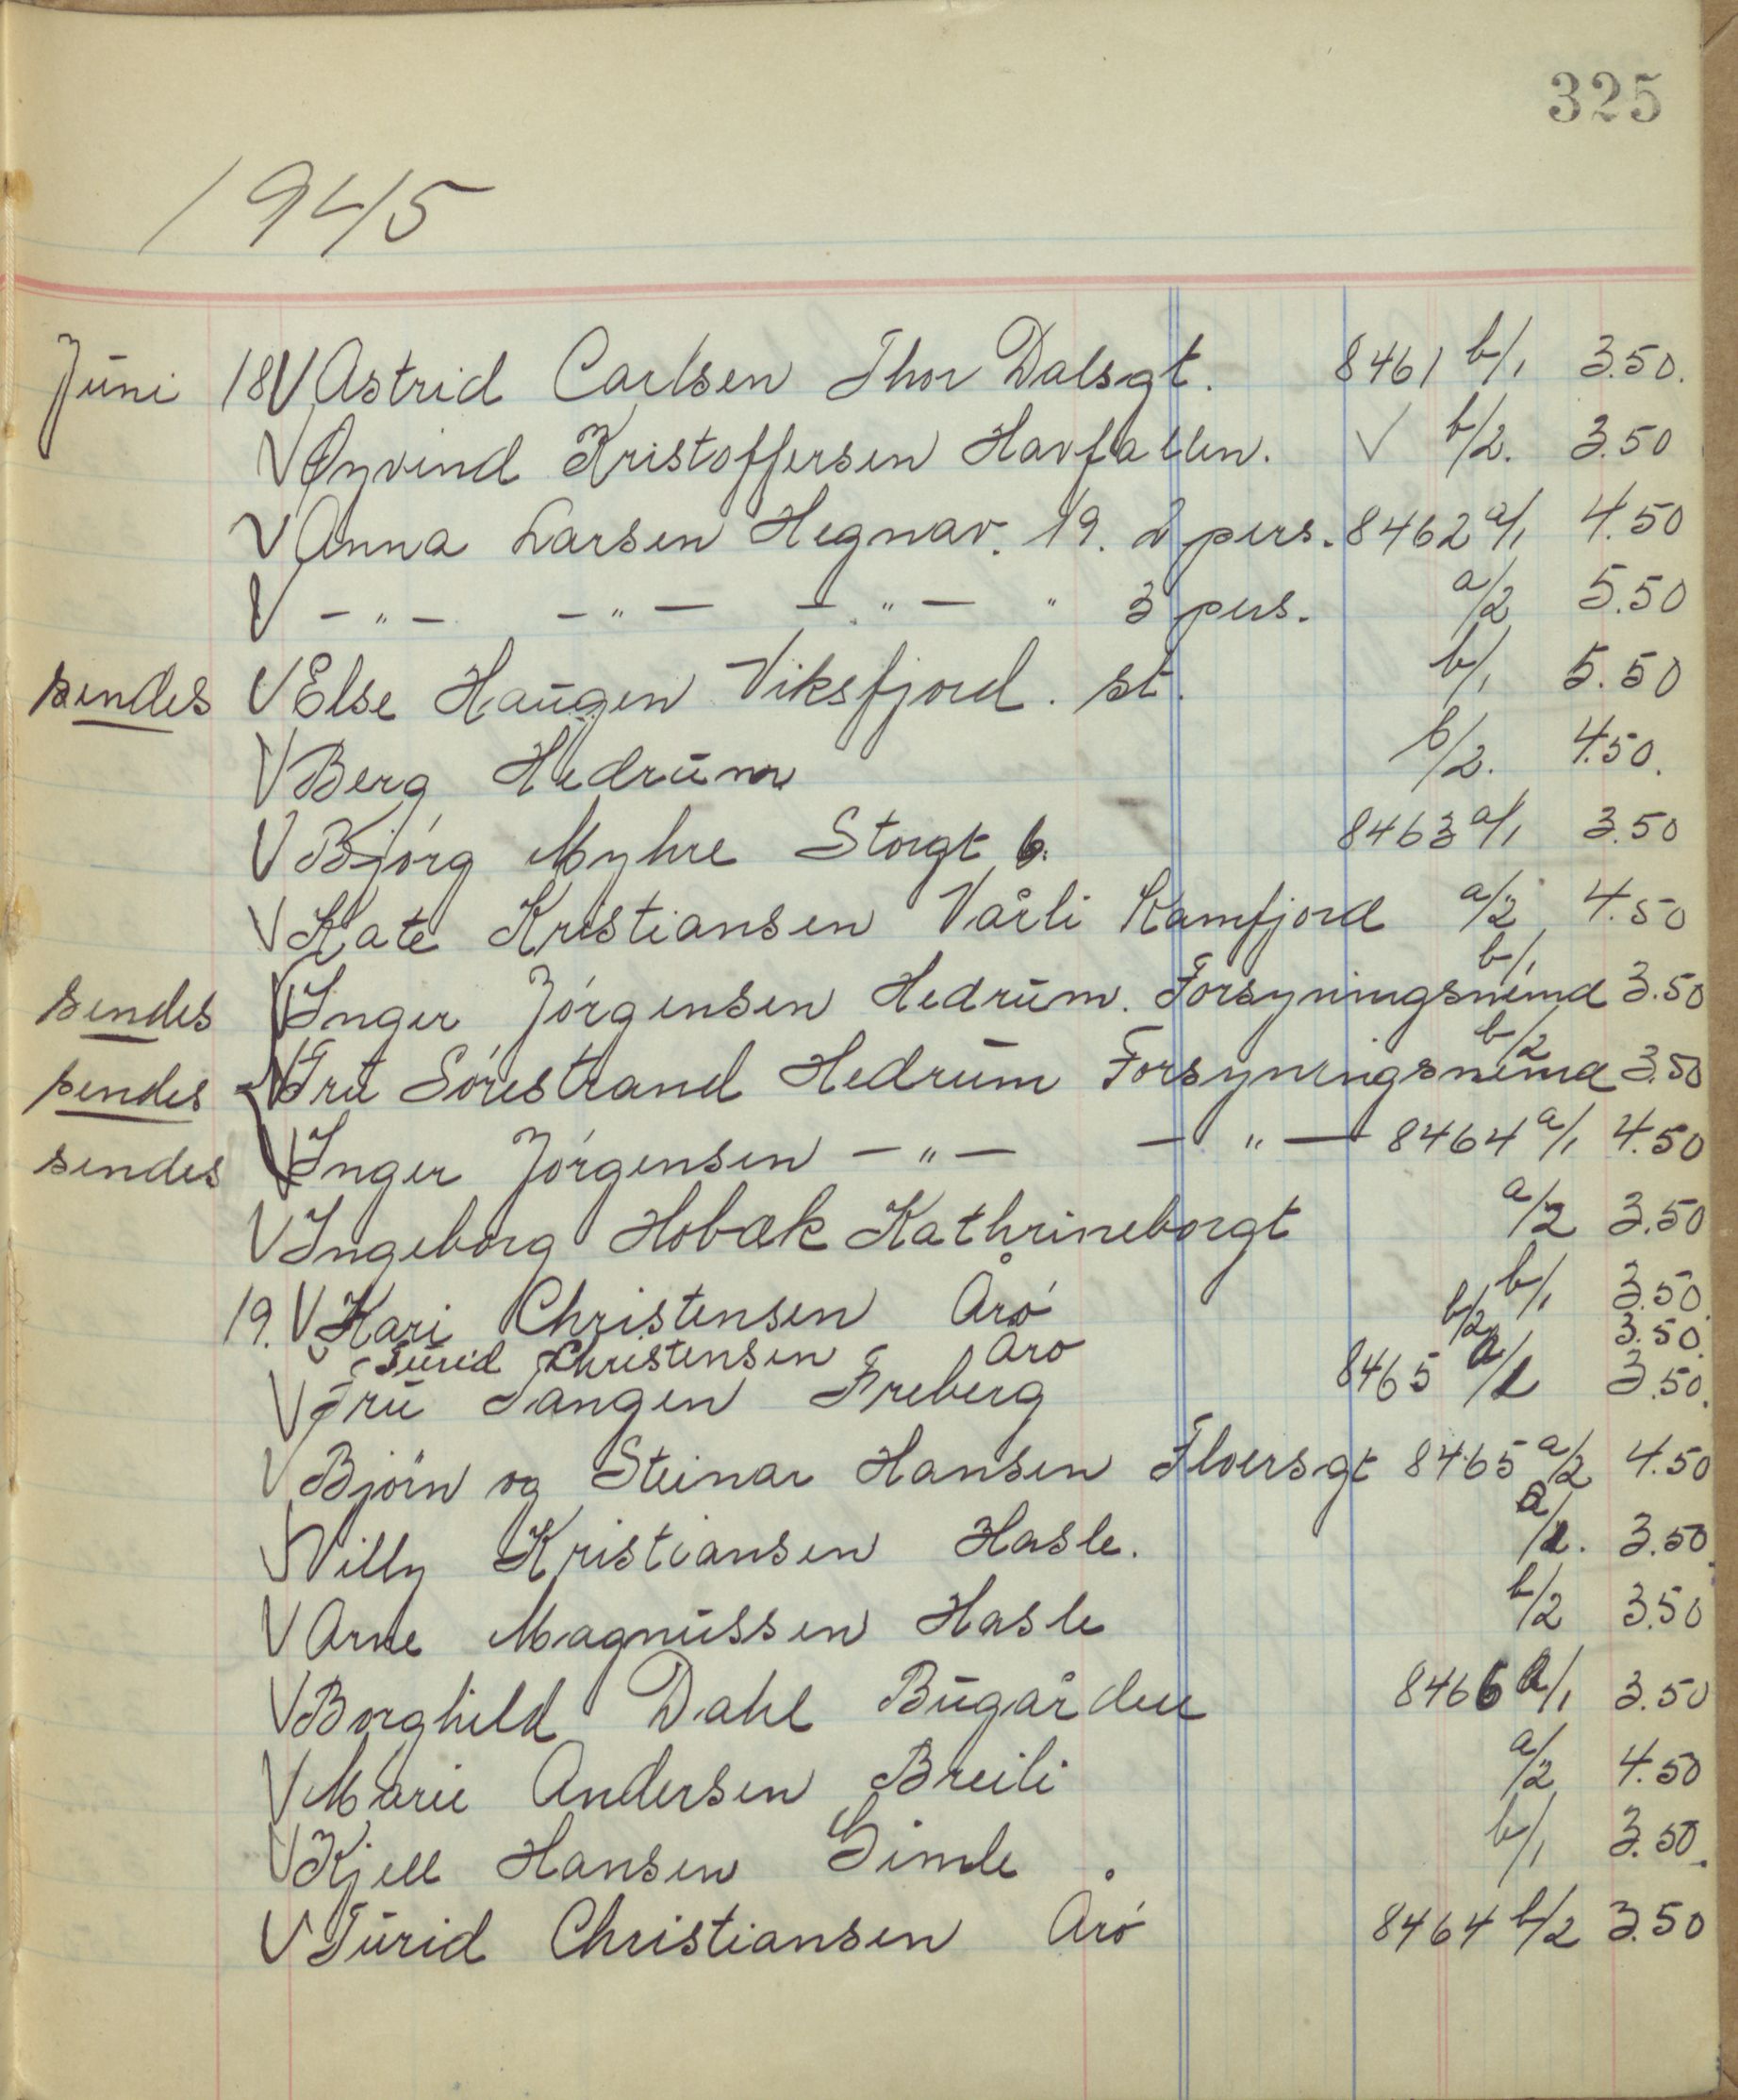 325
1945
Juni 18 V Astrid Carlsen Thor Dalsgt. 8461 b/1 3.50.
V Øyvind Kristoffersen Havfallen. ✓ b/2. 3.50
V Anna Larsen Hegnav. 19. 2 pers. 8462 a/1 4.50
V -"- -"- -"- " 3 pers. a/2 5.50
sendes V Else Haugen Viksfjord. st. b/1 5.50
V Berg Hedrum b/2. 4.50.
V Bjørg Myhre Storgt 6. 8463 a/1 3.50
V Kate Kristiansen Vårli Kamfjord a/2 4.50
sendes V Inger Jørgensen Hedrum. Forsyningsnemd b/1 3.50
sendes V Fru Sørestrand Hedrum Forsyningsnemd b/2 3.50
sendes V Inger Jørgensen -"- -"- 8464 a/1 4.50
V Ingeborg Hobæk Kathrineborgt a/2 3.50
19. V Kari Christensen Årø b/1 3.50.
V Turid Christensen Årø b/2 3.50.
V Fru Tangen Freberg 8465 a/1 3.50.
V Bjørn og Steinar Hansen Floersgt 8465 a/2 4.50
Willy Kristiansen Hasle. a/1. 3.50.
V Arne Magnussen Hasle b/2 3.50
V Borghild Dahl Bugården 8466 a/1 3.50
V Marie Andersen Breili a/2 4.50
V Kjell Hansen Gimle . b/1 3.50.
V Turid Christiansen Årø 8464 b/2 3.50